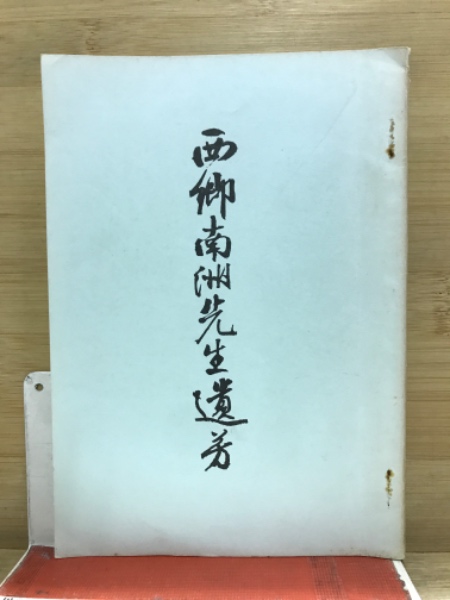 西郷南洲先生遺芳